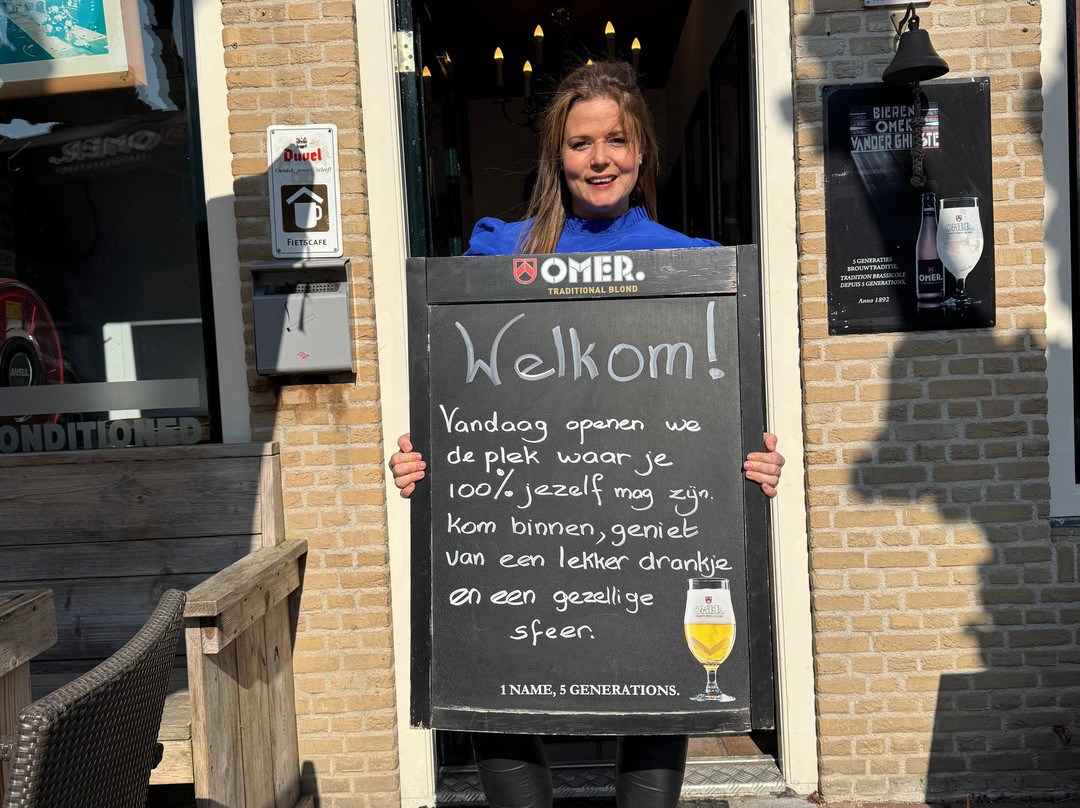 Duvel
Ontdek, geniet, beleef!
FIETSCAFE
ANSUL
CONDITIONED
BIEREN
OMER
VANDER GHINSTE
5 GENERATIES
BROUWTRADITIE,
TRADITION BRASSICOLE
DEPUIS 5 GENERATIONS,
Anno 1892
OMER.
OMER.
OMER.
TRADITIONAL BLOND
Welkom!
Vandaag openen we
de plek waar je
100% jezelf mag zijn.
Kom binnen, geniet
van een lekker drankje
en een gezellige
sfeer.
OMER.
TRADITIONAL BLOND
1 NAME, 5 GENERATIONS.